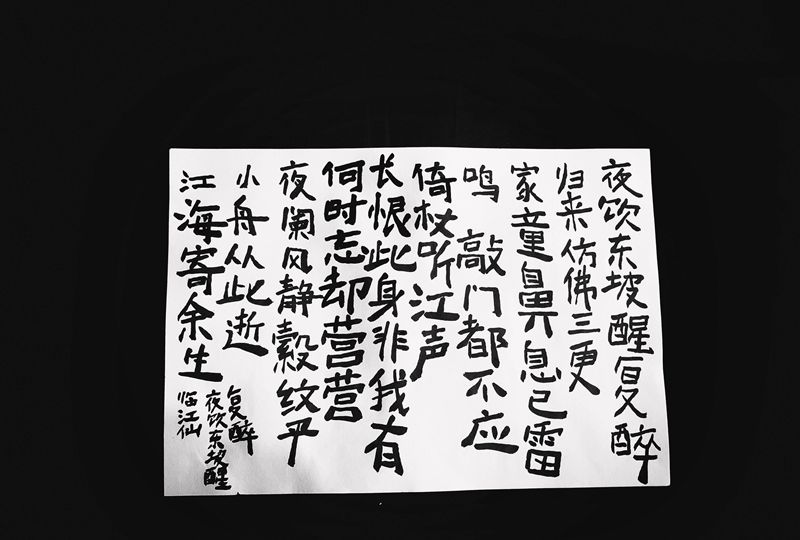 夜饮东坡醒复醉
归来仿佛三更
家童鼻息已雷
鸣 敲门都不应
倚杖听江声
长恨此身非我有
何时忘却营营
夜阑风静縠纹平
小舟从此逝
江海寄余生
临江仙
夜饮东坡醒
复醉